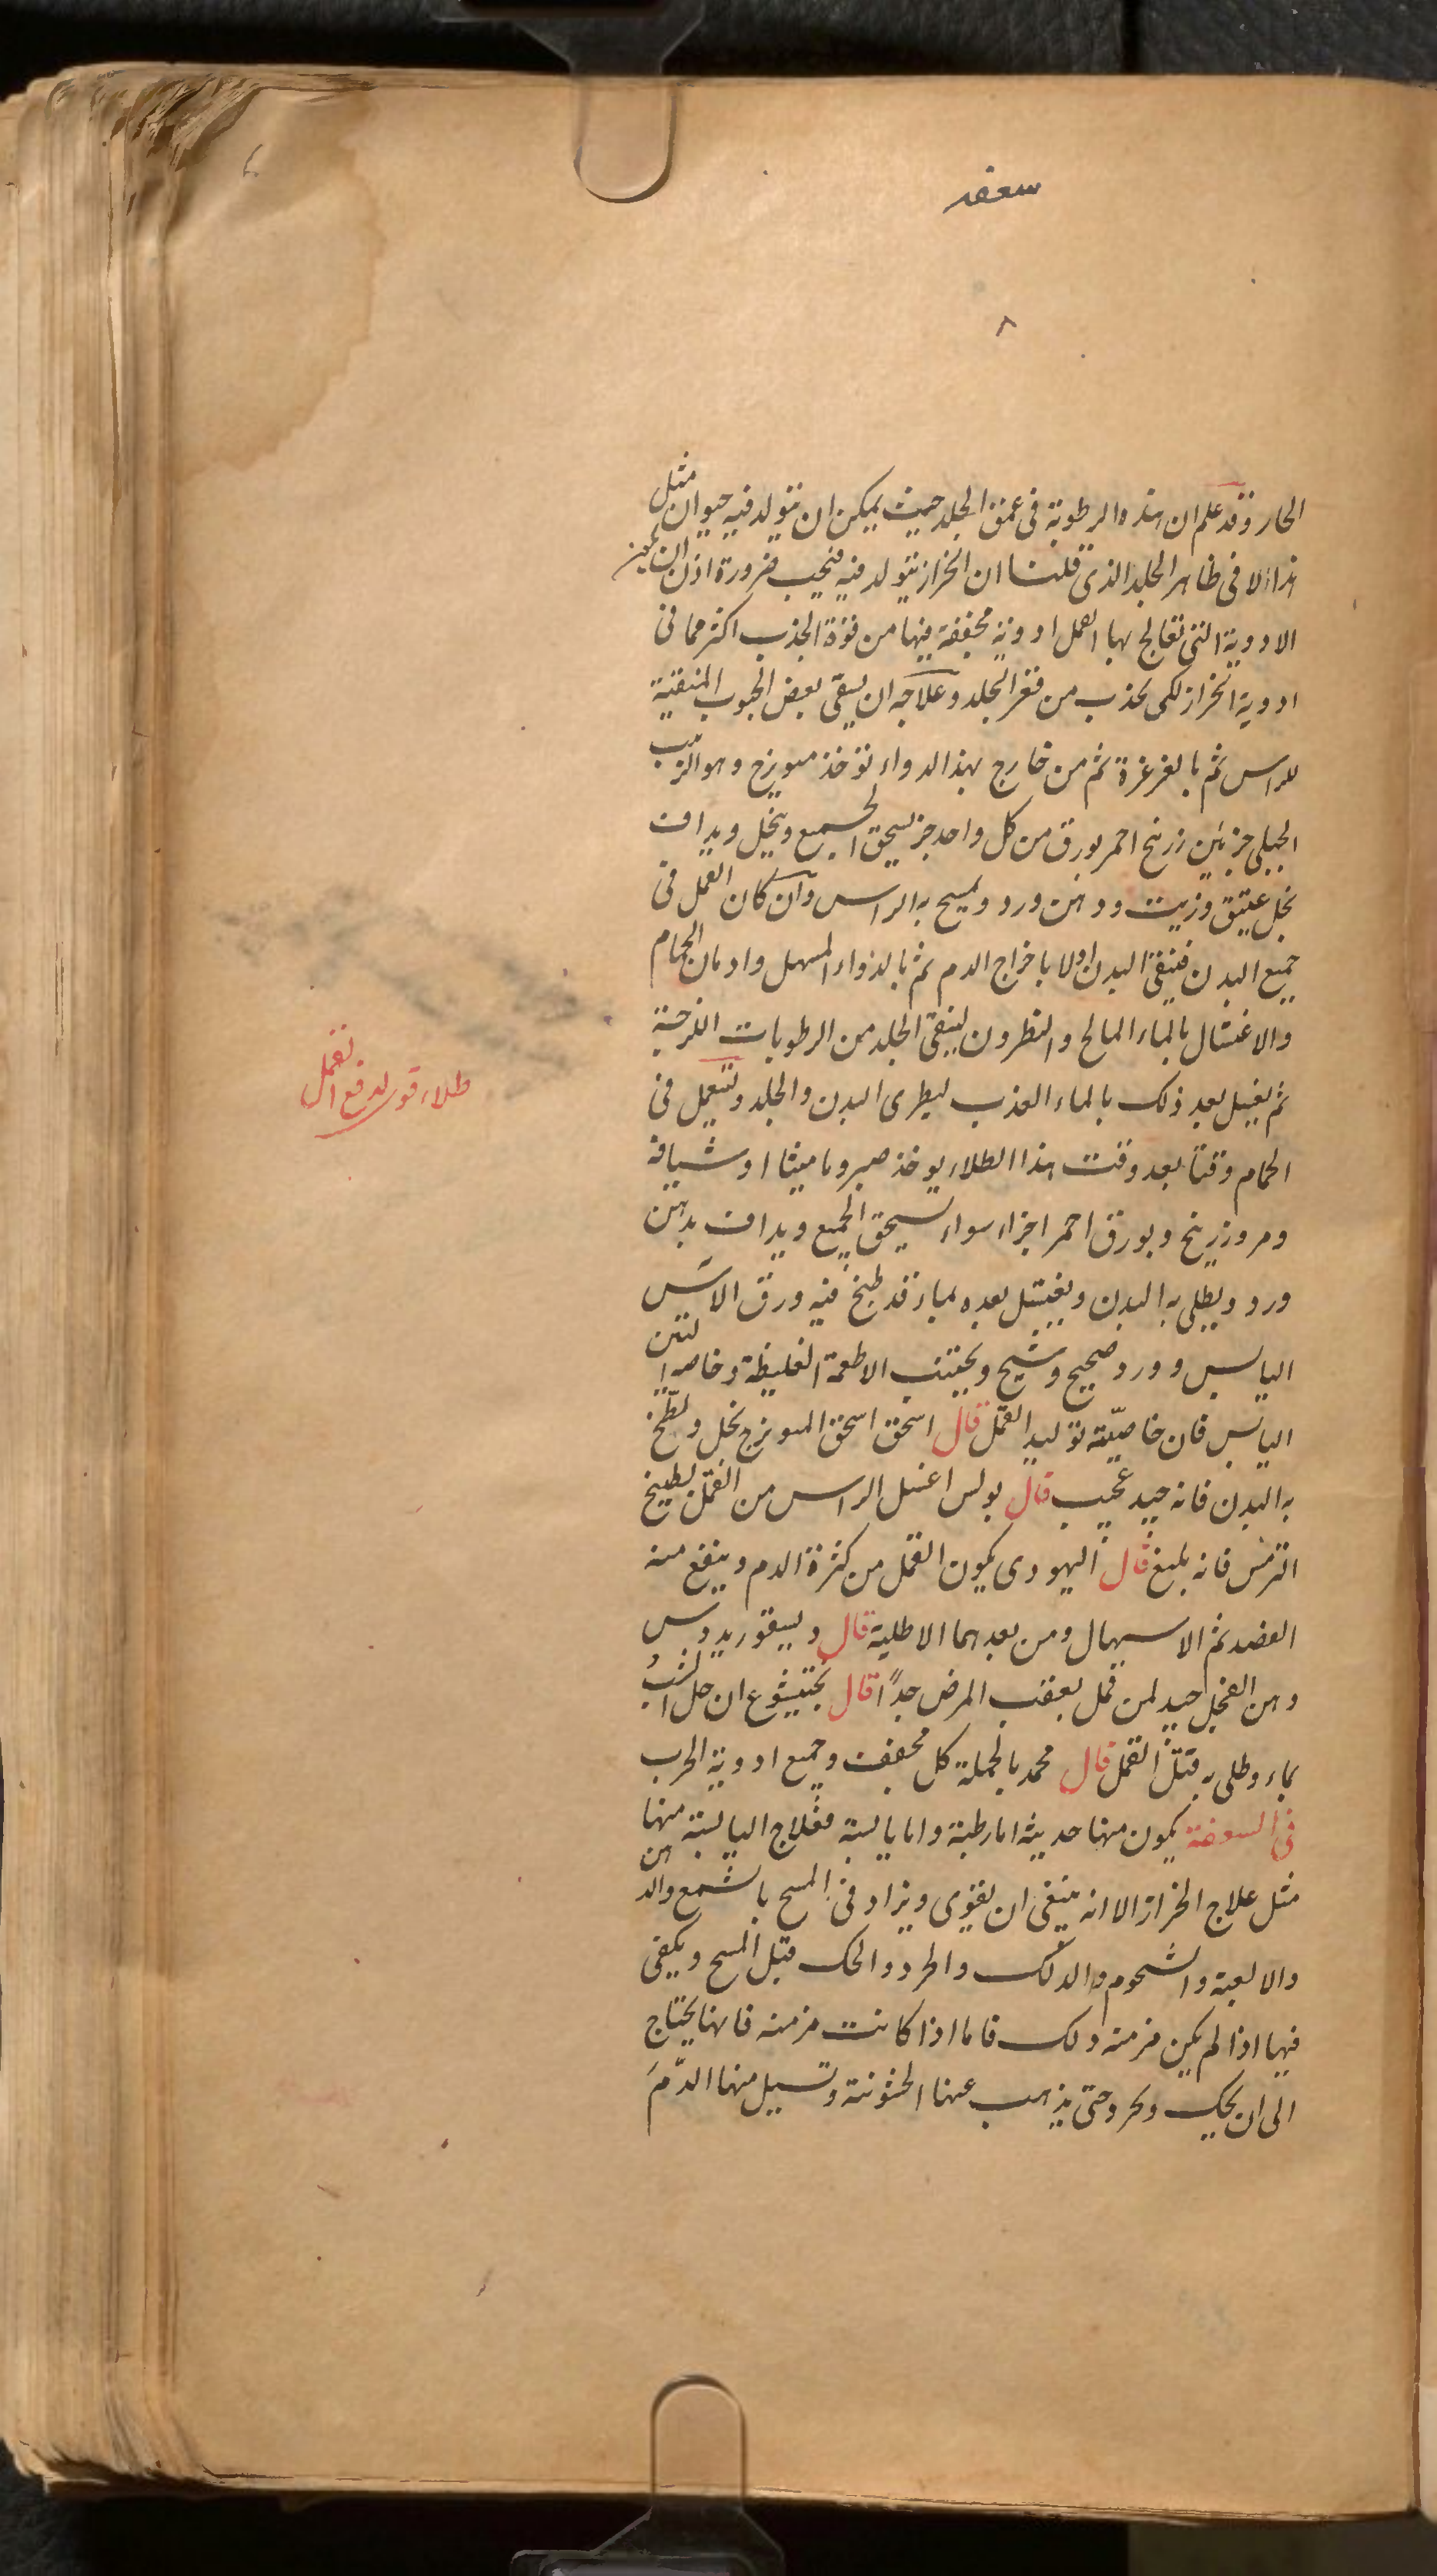 سعفه
٨
الحار وقد علم ان هذه الرطوبة فى عمق الجلد حيث يمكن ان يتولد فيه حيوان مثل
هذا لا فى ظاهر الجلد الذى قلنا ان الحزاز يتولد فيه فيجب ضرورة اذن ان يكون
الادوية التى تعالج بها القمل ادوية مجففة فيها من قوة الجذب اكثر مما فى
ادوية الحزاز لكى تجذب من قعر الجلد وعلاجه ان يسقى بعض الحبوب المنقية
للراس ثم بالغرغرة ثم من خارج بهذا الدواء تؤخذ ميويزج وهو الزبيب
الجبلى جزئين زرنيخ احمر بورق من كل واحد جز يسحق الجميع وينخل ويداف
بخل عتيق وزيت ودهن ورد ويمسح به الراس وان كان القمل فى
جميع البدن فينقى البدن اولا باخراج الدم ثم بالدواء المسهل وادمان الحمام
والاغتسال بالماء المالح والنطرون لينقى الجلد من الرطوبات اللزجة
ثم يغسل بعد ذلك بالماء العذب ليطرى البدن والجلد وتستعمل فى
الحمام وقتا بعد وقت هذا الطلاء يوخذ صبر وماميثا او شيافه
ومر وزرنيخ وبورق احمر اجزاء سواء يسحق الجميع ويداف بدهن
ورد ويطلى به البدن ويغتسل بعده بماء قد طبخ فيه ورق الاس
اليابس وورد صحيح وشيح ويجتنب الاطعمة الغليظة وخاصه التين
اليابس فان خاصيته توليد القمل قال اسحق اسحق الميويزج بخل ولطخ
به البدن فانه جيد عجيب قال بولس اغسل الراس من القمل بطبيخ
الترمس فانه بليغ قال اليهودى يكون القمل من كثرة الدم وينفع منه
الفصد ثم الاسهال ومن بعدهما الاطلية قال ديسقوريدوس
دهن الفجل جيد لمن قمل بعقب المرض جدًا قال بختيشوع ان حل الشب
بماء وطلى به قتل القمل قال محمد بالجملة كل مجفف وجميع ادوية الجرب
فى السعفة يكون منها حديثه اما رطبة واما يابسة فعلاج اليابسة منها
مثل علاج الحزاز الا انه ينبغى ان يقوى ويزاد فى المسح بالشمع والدهن
والالعبة والشحوم والدلك والجرد والحك قبل المسح ويكفى
فيها اذا لم يكن مزمنه ذلك فاما اذا كانت مزمنه فانها يحتاج
الى ان يحك وتجرد حتى يذهب عنها الخشونة وتسيل منها الدّم
طلاء قوى لدفع القمل